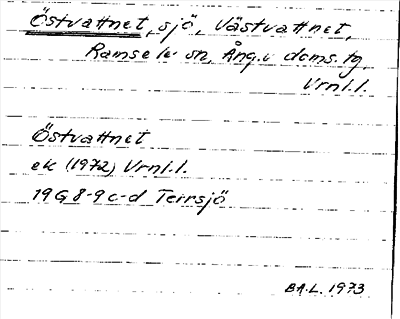 Östvattnet, sjö, Västvattnet,
Ramsele sn, Ång.v doms.tg.
Vrnl.l.
Östvattnet
ek (1972) Vrnl.l.
19G 8-9 c-d Terrsjö
BA.L. 1973